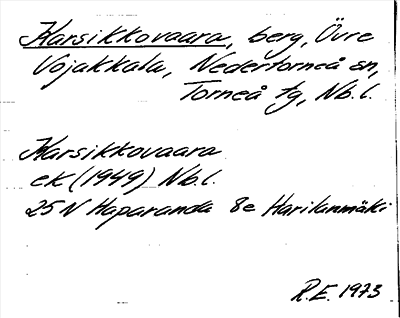 Karsikkovaara, berg, Övre
Vojakkala, Nedertorneå sn,
Torneå tg, Nb.l.
Karsikkovaara
ek (1949) Nb.l.
25N Haparanda 8e Harilanmäki
R.E. 1973